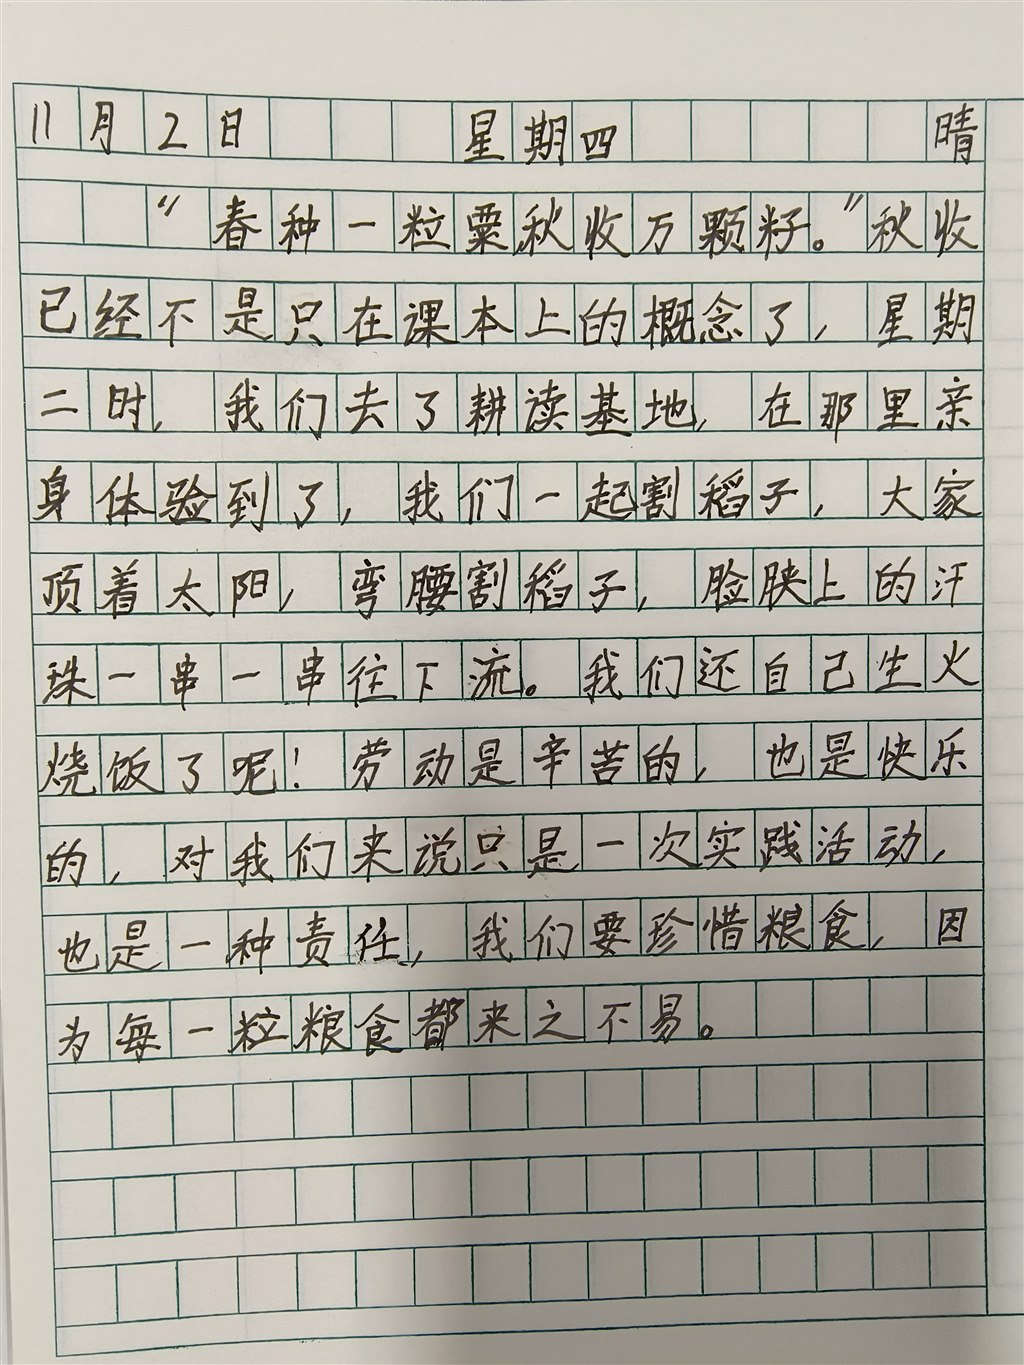 11月2日 星期四 晴
“春种一粒粟秋收万颗籽。”秋收
已经不是只在课本上的概念了，星期
二时，我们去了耕读基地，在那里亲
身体验到了，我们一起割稻子，大家
顶着太阳，弯腰割稻子，脸胦上的汗
珠一串一串往下流。我们还自己生火
烧饭了呢！劳动是辛苦的，也是快乐
的，对我们来说只是一次实践活动，
也是一种责任，我们要珍惜粮食，因
为每一粒粮食都来之不易。